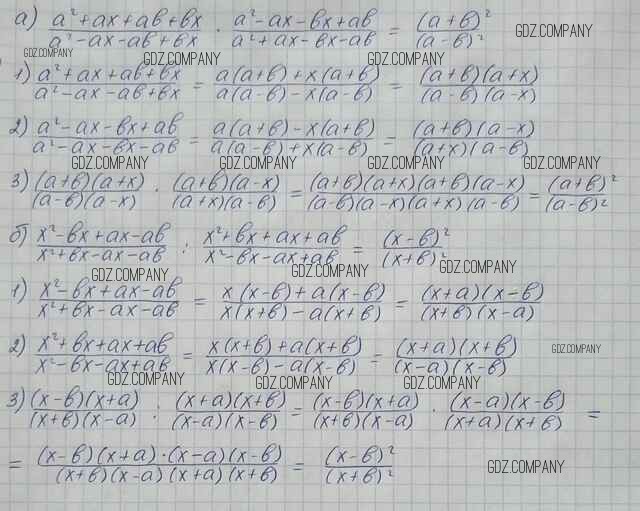 а) (a² + ax + ab + bx)/(a² - ax - ab + bx) · (a² - ax - bx + ab)/(a² + ax - bx - ab) = (a + b)²/(a - b)² GDZ.COMPANY
GDZ.COMPANY GDZ.COMPANY GDZ.COMPANY
1) (a² + ax + ab + bx)/(a² - ax - ab + bx) = (a(a + b) + x(a + b))/(a(a - b) - x(a - b)) = ((a + b)(a + x))/((a - b)(a - x))
2) (a² - ax - bx + ab)/(a² - ax - bx - ab) = (a(a + b) - x(a + b))/(a(a - b) + x(a - b)) = ((a + b)(a - x))/((a + x)(a - b))
GDZ.COMPANY GDZ.COMPANY GDZ.COMPANY GDZ.COMPANY
3) ((a + b)(a + x))/((a - b)(a - x)) · ((a + b)(a - x))/((a + x)(a - b)) = ((a + b)(a + x)(a + b)(a - x))/((a - b)(a - x)(a + x)(a - b)) = (a + b)²/(a - b)²
б) (x² - bx + ax - ab)/(x² + bx - ax - ab) : (x² + bx + ax + ab)/(x² - bx - ax + ab) = (x - b)²/(x + b)²
GDZ.COMPANY GDZ.COMPANY GDZ.COMPANY
1) (x² - bx + ax - ab)/(x² + bx - ax - ab) = (x(x - b) + a(x - b))/(x(x + b) - a(x + b)) = ((x + a)(x - b))/((x + b)(x - a))
2) (x² + bx + ax + ab)/(x² - bx - ax + ab) = (x(x + b) + a(x + b))/(x(x - b) - a(x - b)) = ((x + a)(x + b))/((x - a)(x - b)) GDZ.COMPANY
GDZ.COMPANY GDZ.COMPANY GDZ.COMPANY
3) ((x - b)(x + a))/((x + b)(x - a)) : ((x + a)(x + b))/((x - a)(x - b)) = ((x - b)(x + a))/((x + b)(x - a)) · ((x - a)(x - b))/((x + a)(x + b)) =
= ((x - b)(x + a) · (x - a)(x - b))/((x + b)(x - a)(x + a)(x + b)) = (x - b)²/(x + b)² GDZ.COMPANY